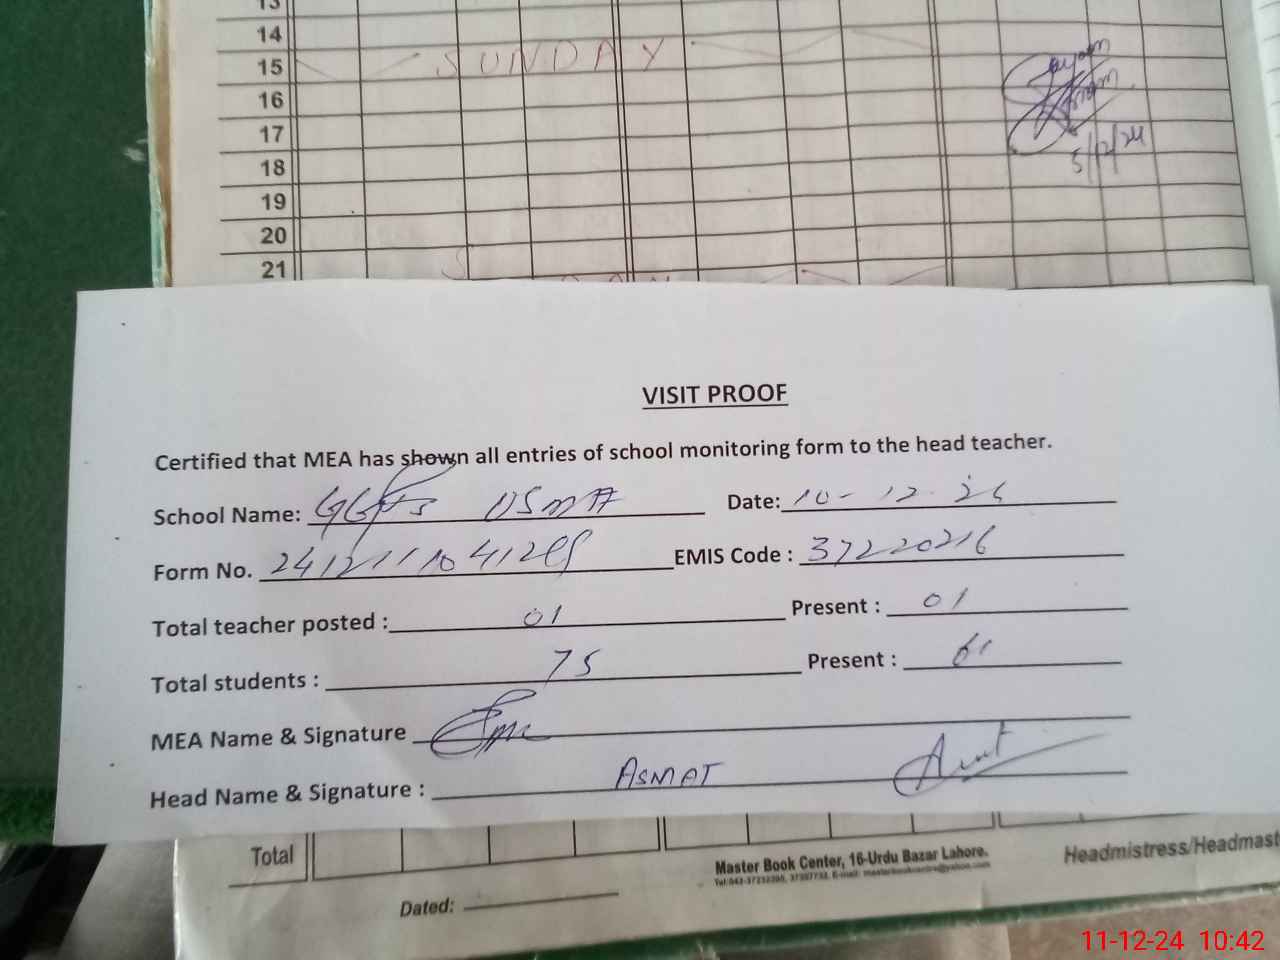 13
14
15 SUNDAY
16
17
18
19
20
21
5/12/24
VISIT PROOF
Certified that MEA has shown all entries of school monitoring form to the head teacher.
School Name: GGPS USMA Date: 10-12-24
Form No. EMIS Code : 37220216
Total teacher posted : 01 Present : 01
Total students : 75 Present :
MEA Name & Signature
Head Name & Signature : ASMAT
Total
Master Book Center, 16-Urdu Bazar Lahore.
Headmistress/Headmast
Dated:
11-12-24 10:42